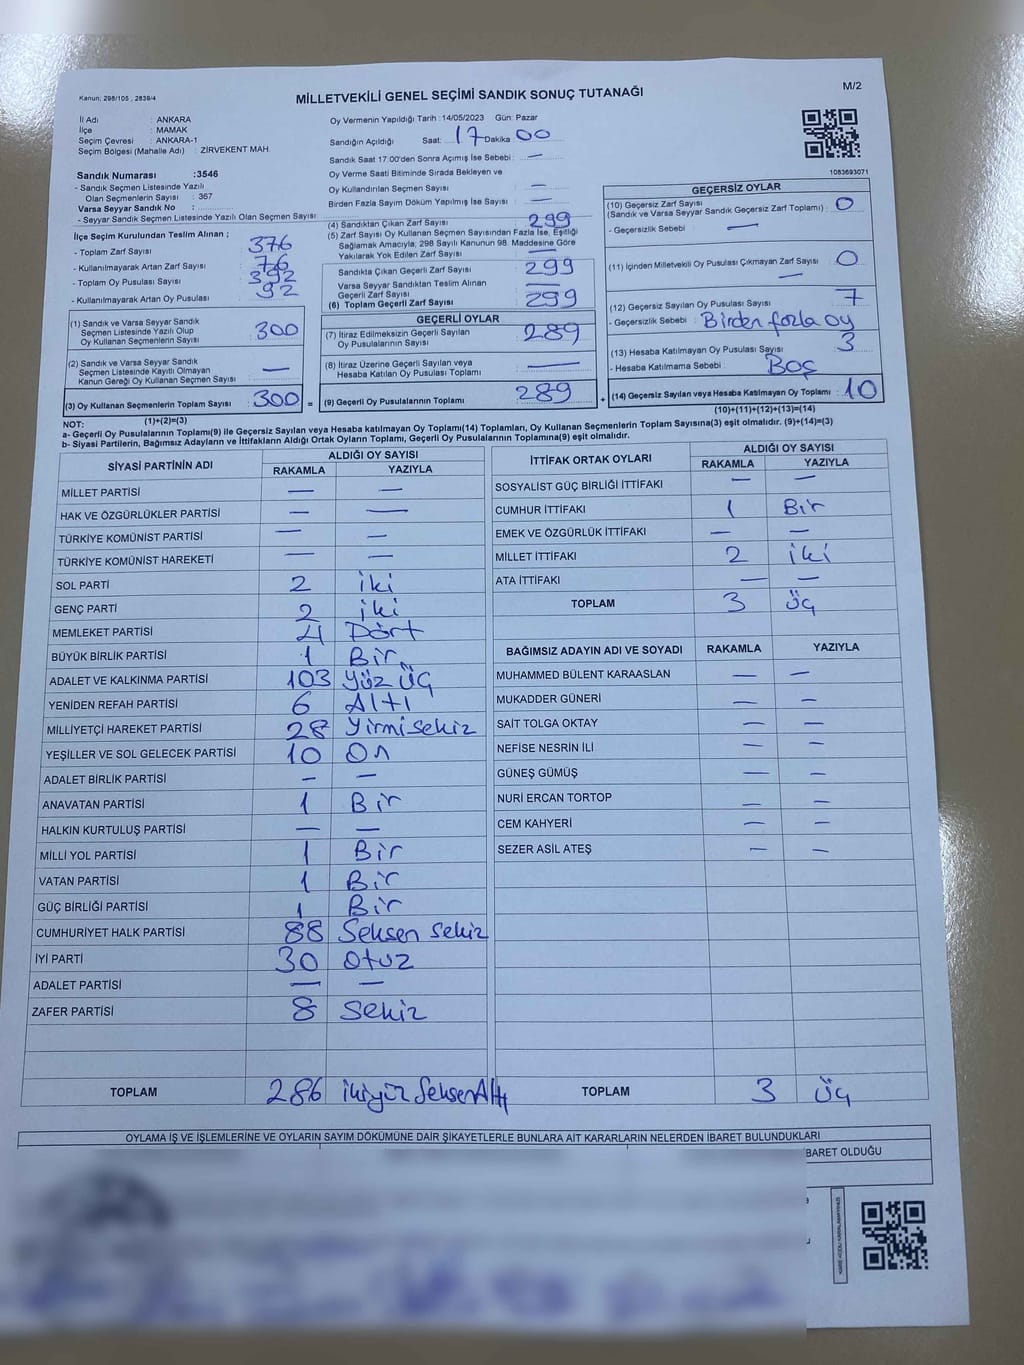 Kanun; 298/105 , 2839/4
MİLLETVEKİLİ GENEL SEÇİMİ SANDIK SONUÇ TUTANAĞI
M/2
İl Adı : ANKARA
İlçe : MAMAK
Seçim Çevresi : ANKARA-1
Seçim Bölgesi (Mahalle Adı) : ZİRVEKENT MAH.
Sandık Numarası :3546
- Sandık Seçmen Listesinde Yazılı
Olan Seçmenlerin Sayısı : 367
Varsa Seyyar Sandık No :
- Seyyar Sandık Seçmen Listesinde Yazılı Olan Seçmen Sayısı
İlçe Seçim Kurulundan Teslim Alınan ;
- Toplam Zarf Sayısı 376
- Kullanılmayarak Artan Zarf Sayısı 76
- Toplam Oy Pusulası Sayısı 392
- Kullanılmayarak Artan Oy Pusulası 92
(1) Sandık ve Varsa Seyyar Sandık
Seçmen Listesinde Yazılı Olup
Oy Kullanan Seçmenlerin Sayısı 300
(2) Sandık ve Varsa Seyyar Sandık
Seçmen Listesinde Kayıtlı Olmayan
Kanun Gereği Oy Kullanan Seçmen Sayısı —
(3) Oy Kullanan Seçmenlerin Toplam Sayısı 300 =
(1)+(2)=(3)
Oy Vermenin Yapıldığı Tarih :14/05/2023 Gün: Pazar
Sandığın Açıldığı Saat: 17 Dakika 00
Sandık Saat 17:00'den Sonra Açımış İse Sebebi : —
Oy Verme Saati Bitiminde Sırada Bekleyen ve
Oy Kullandırılan Seçmen Sayısı : —
Birden Fazla Sayım Döküm Yapılmış İse Sayısı : —
(4) Sandıktan Çıkan Zarf Sayısı 299
(5) Zarf Sayısı Oy Kullanan Seçmen Sayısından Fazla İse, Eşitliği
Sağlamak Amacıyla; 298 Sayılı Kanunun 98. Maddesine Göre
Yakılarak Yok Edilen Zarf Sayısı —
Sandıkta Çıkan Geçerli Zarf Sayısı 299
Varsa Seyyar Sandıktan Teslim Alınan
Geçerli Zarf Sayısı —
(6) Toplam Geçerli Zarf Sayısı 299
GEÇERLİ OYLAR
(7) İtiraz Edilmeksizin Geçerli Sayılan
Oy Pusulalarının Sayısı 289
(8) İtiraz Üzerine Geçerli Sayılan veya
Hesaba Katılan Oy Pusulası Toplamı —
(9) Geçerli Oy Pusulalarının Toplamı 289 +
1083693071
GEÇERSİZ OYLAR
(10) Geçersiz Zarf Sayısı 0
(Sandık ve Varsa Seyyar Sandık Geçersiz Zarf Toplamı)
- Geçersizlik Sebebi : —
(11) İçinden Milletvekili Oy Pusulası Çıkmayan Zarf Sayısı 0
—
(12) Geçersiz Sayılan Oy Pusulası Sayısı 7
- Geçersizlik Sebebi : Birden fazla oy
(13) Hesaba Katılmayan Oy Pusulası Sayısı 3
- Hesaba Katılmama Sebebi : Boş
(14) Geçersiz Sayılan veya Hesaba Katılmayan Oy Toplamı 10
(10)+(11)+(12)+(13)=(14)
NOT:
a- Geçerli Oy Pusulalarının Toplamı(9) ile Geçersiz Sayılan veya Hesaba katılmayan Oy Toplamı(14) Toplamları, Oy Kullanan Seçmenlerin Toplam Sayısına(3) eşit olmalıdır. (9)+(14)=(3)
b- Siyasi Partilerin, Bağımsız Adayların ve İttifakların Aldığı Ortak Oyların Toplamı, Geçerli Oy Pusulalarının Toplamına(9) eşit olmalıdır.
SİYASİ PARTİNİN ADI ALDIĞI OY SAYISI
RAKAMLA YAZIYLA
MİLLET PARTİSİ — —
HAK VE ÖZGÜRLÜKLER PARTİSİ — —
TÜRKİYE KOMÜNİST PARTİSİ — —
TÜRKİYE KOMÜNİST HAREKETİ — —
SOL PARTİ 2 iki
GENÇ PARTİ 2 iki
MEMLEKET PARTİSİ 4 Dört
BÜYÜK BİRLİK PARTİSİ 1 Bir
ADALET VE KALKINMA PARTİSİ 103 Yüz Üç
YENİDEN REFAH PARTİSİ 6 Altı
MİLLİYETÇİ HAREKET PARTİSİ 28 Yirmisekiz
YEŞİLLER VE SOL GELECEK PARTİSİ 10 On
ADALET BİRLİK PARTİSİ — —
ANAVATAN PARTİSİ 1 Bir
HALKIN KURTULUŞ PARTİSİ — —
MİLLİ YOL PARTİSİ 1 Bir
VATAN PARTİSİ 1 Bir
GÜÇ BİRLİĞİ PARTİSİ 1 Bir
CUMHURİYET HALK PARTİSİ 88 Seksen Sekiz
İYİ PARTİ 30 Otuz
ADALET PARTİSİ — —
ZAFER PARTİSİ 8 Sekiz
TOPLAM 286 ikiyüz SeksenAltı
İTTİFAK ORTAK OYLARI ALDIĞI OY SAYISI
RAKAMLA YAZIYLA
SOSYALİST GÜÇ BİRLİĞİ İTTİFAKI — —
CUMHUR İTTİFAKI 1 Bir
EMEK VE ÖZGÜRLÜK İTTİFAKI — —
MİLLET İTTİFAKI 2 iki
ATA İTTİFAKI — —
TOPLAM 3 Üç
BAĞIMSIZ ADAYIN ADI VE SOYADI RAKAMLA YAZIYLA
MUHAMMED BÜLENT KARAASLAN — —
MUKADDER GÜNERİ — —
SAİT TOLGA OKTAY — —
NEFİSE NESRİN İLİ — —
GÜNEŞ GÜMÜŞ — —
NURİ ERCAN TORTOP — —
CEM KAHYERİ — —
SEZER ASİL ATEŞ — —
TOPLAM 3 Üç
OYLAMA İŞ VE İŞLEMLERİNE VE OYLARIN SAYIM DÖKÜMÜNE DAİR ŞİKAYETLERLE BUNLARA AİT KARARLARIN NELERDEN İBARET BULUNDUKLARI
BARET OLDUĞU